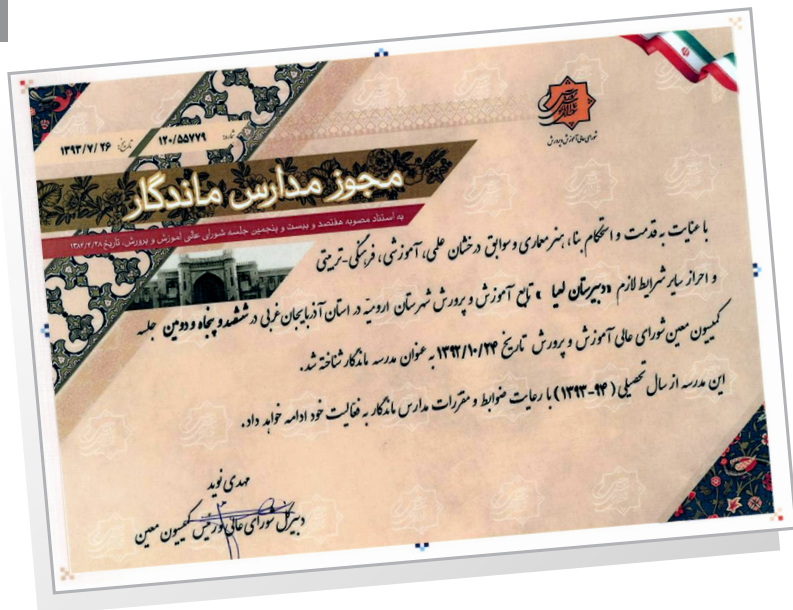 شورای عالی آموزش و پرورش
شماره: ۱۲۰/۵۵۷۷۹
تاریخ: ۱۳۹۳/۷/۲۶
مجوز مدارس ماندگار
به استناد مصوبه هفتصد و بیست و پنجمین جلسه شورای عالی آموزش و پرورش، تاریخ ۱۳۸۶/۲/۲۸
با عنایت به قدمت و استحکام بنا، هنر معماری و سوابق درخشان علمی، آموزشی، فرهنگی-تربیتی
و احراز سایر شرایط لازم «دبیرستان لهیا» تابع آموزش و پرورش شهرستان ارومیّه در استان آذربایجان غربی در ششصد و پنجاه و دومین جلسه
کمیسیون معین شورای عالی آموزش و پرورش تاریخ ۱۳۹۲/۱۰/۲۴ به عنوان مدرسه ماندگار شناخته شد.
این مدرسه از سال تحصیلی (۹۴-۱۳۹۳) با رعایت ضوابط و مقررات مدارس ماندگار به فعالیت خود ادامه خواهد داد.
مهدی نوید
دبیرکل شورای عالی و رئیس کمیسیون معین